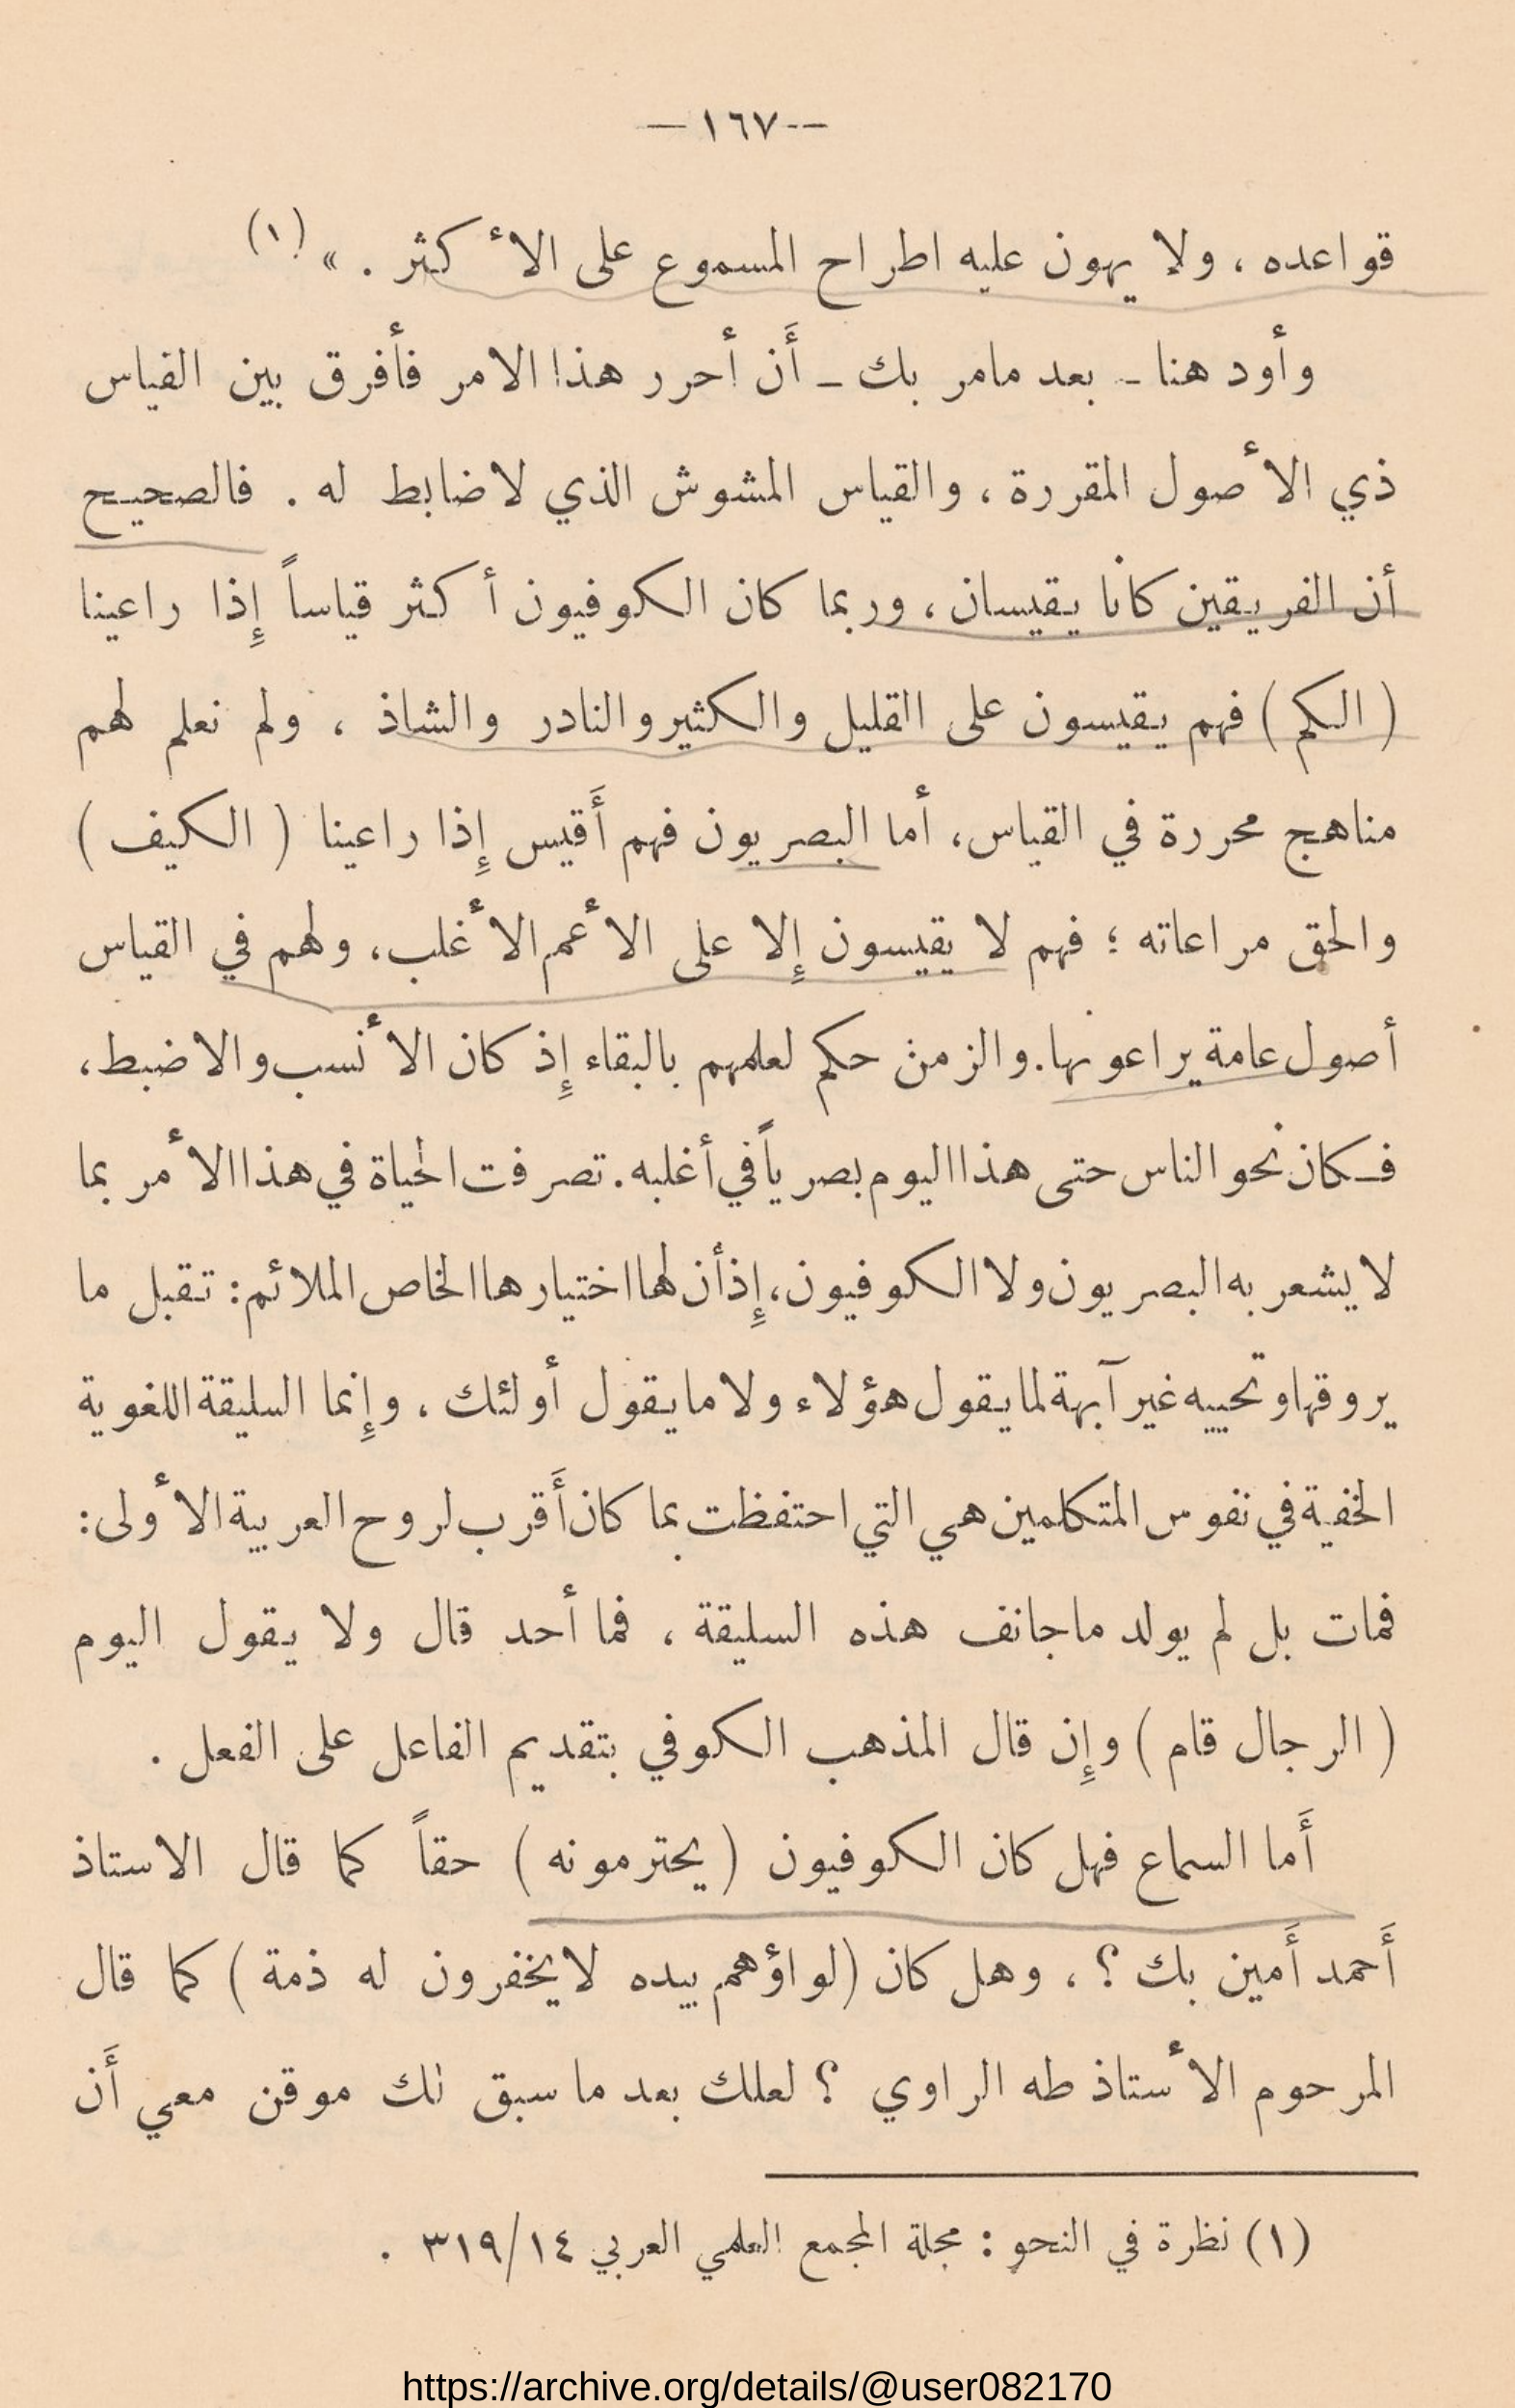 — ١٦٧ —
قواعده ، ولا يهون عليه اطراح المسموع على الأكثر . » (١)
وأود هنا ـ بعد مامر بك ـ أَن أحرر هذا الامر فأفرق بين القياس
ذي الأصول المقررة ، والقياس المشوش الذي لاضابط له . فالصحيح
أن الفريقين كانا يقيسان ، وربما كان الكوفيون أكثر قياساً إِذا راعينا
( الكم ) فهم يقيسون على القليل والكثير والنادر والشاذ ، ولم نعلم لهم
مناهج محررة في القياس، أما البصريون فهم أَقيس إِذا راعينا ( الكيف )
والحق مراعاته ؛ فهم لا يقيسون إِلا على الأعم الأغلب، ولهم في القياس
أصول عامة يراعونها. والزمن حكم لعلمهم بالبقاء إِذ كان الأنسب والاضبط،
فكان نحو الناس حتى هذا اليوم بصرياً في أغلبه. تصرفت الحياة في هذا الأمر بما
لا يشعر به البصريون ولا الكوفيون، إِذ أن لها اختيارها الخاص الملائم: تقبل ما
يروقها وتحييه غير آبهة لما يقول هؤلاء ولا ما يقول أولئك ، وإِنما السليقة اللغوية
الخفية في نفوس المتكلمين هي التي احتفظت بما كان أَقرب لروح العربية الأولى:
فمات بل لم يولد ماجانف هذه السليقة ، فما أحد قال ولا يقول اليوم
( الرجال قام ) وإِن قال المذهب الكوفي بتقديم الفاعل على الفعل .
أَما السماع فهل كان الكوفيون ( يحترمونه ) حقاً كما قال الاستاذ
أَحمد أَمين بك ؟ ، وهل كان (لواؤهم بيده لايخفرون له ذمة ) كما قال
المرحوم الأستاذ طه الراوي ؟ لعلك بعد ما سبق لك موقن معي أَن
(١) نظرة في النحو : مجلة المجمع العلمي العربي ٣١٩/١٤ .
https://archive.org/details/@user082170